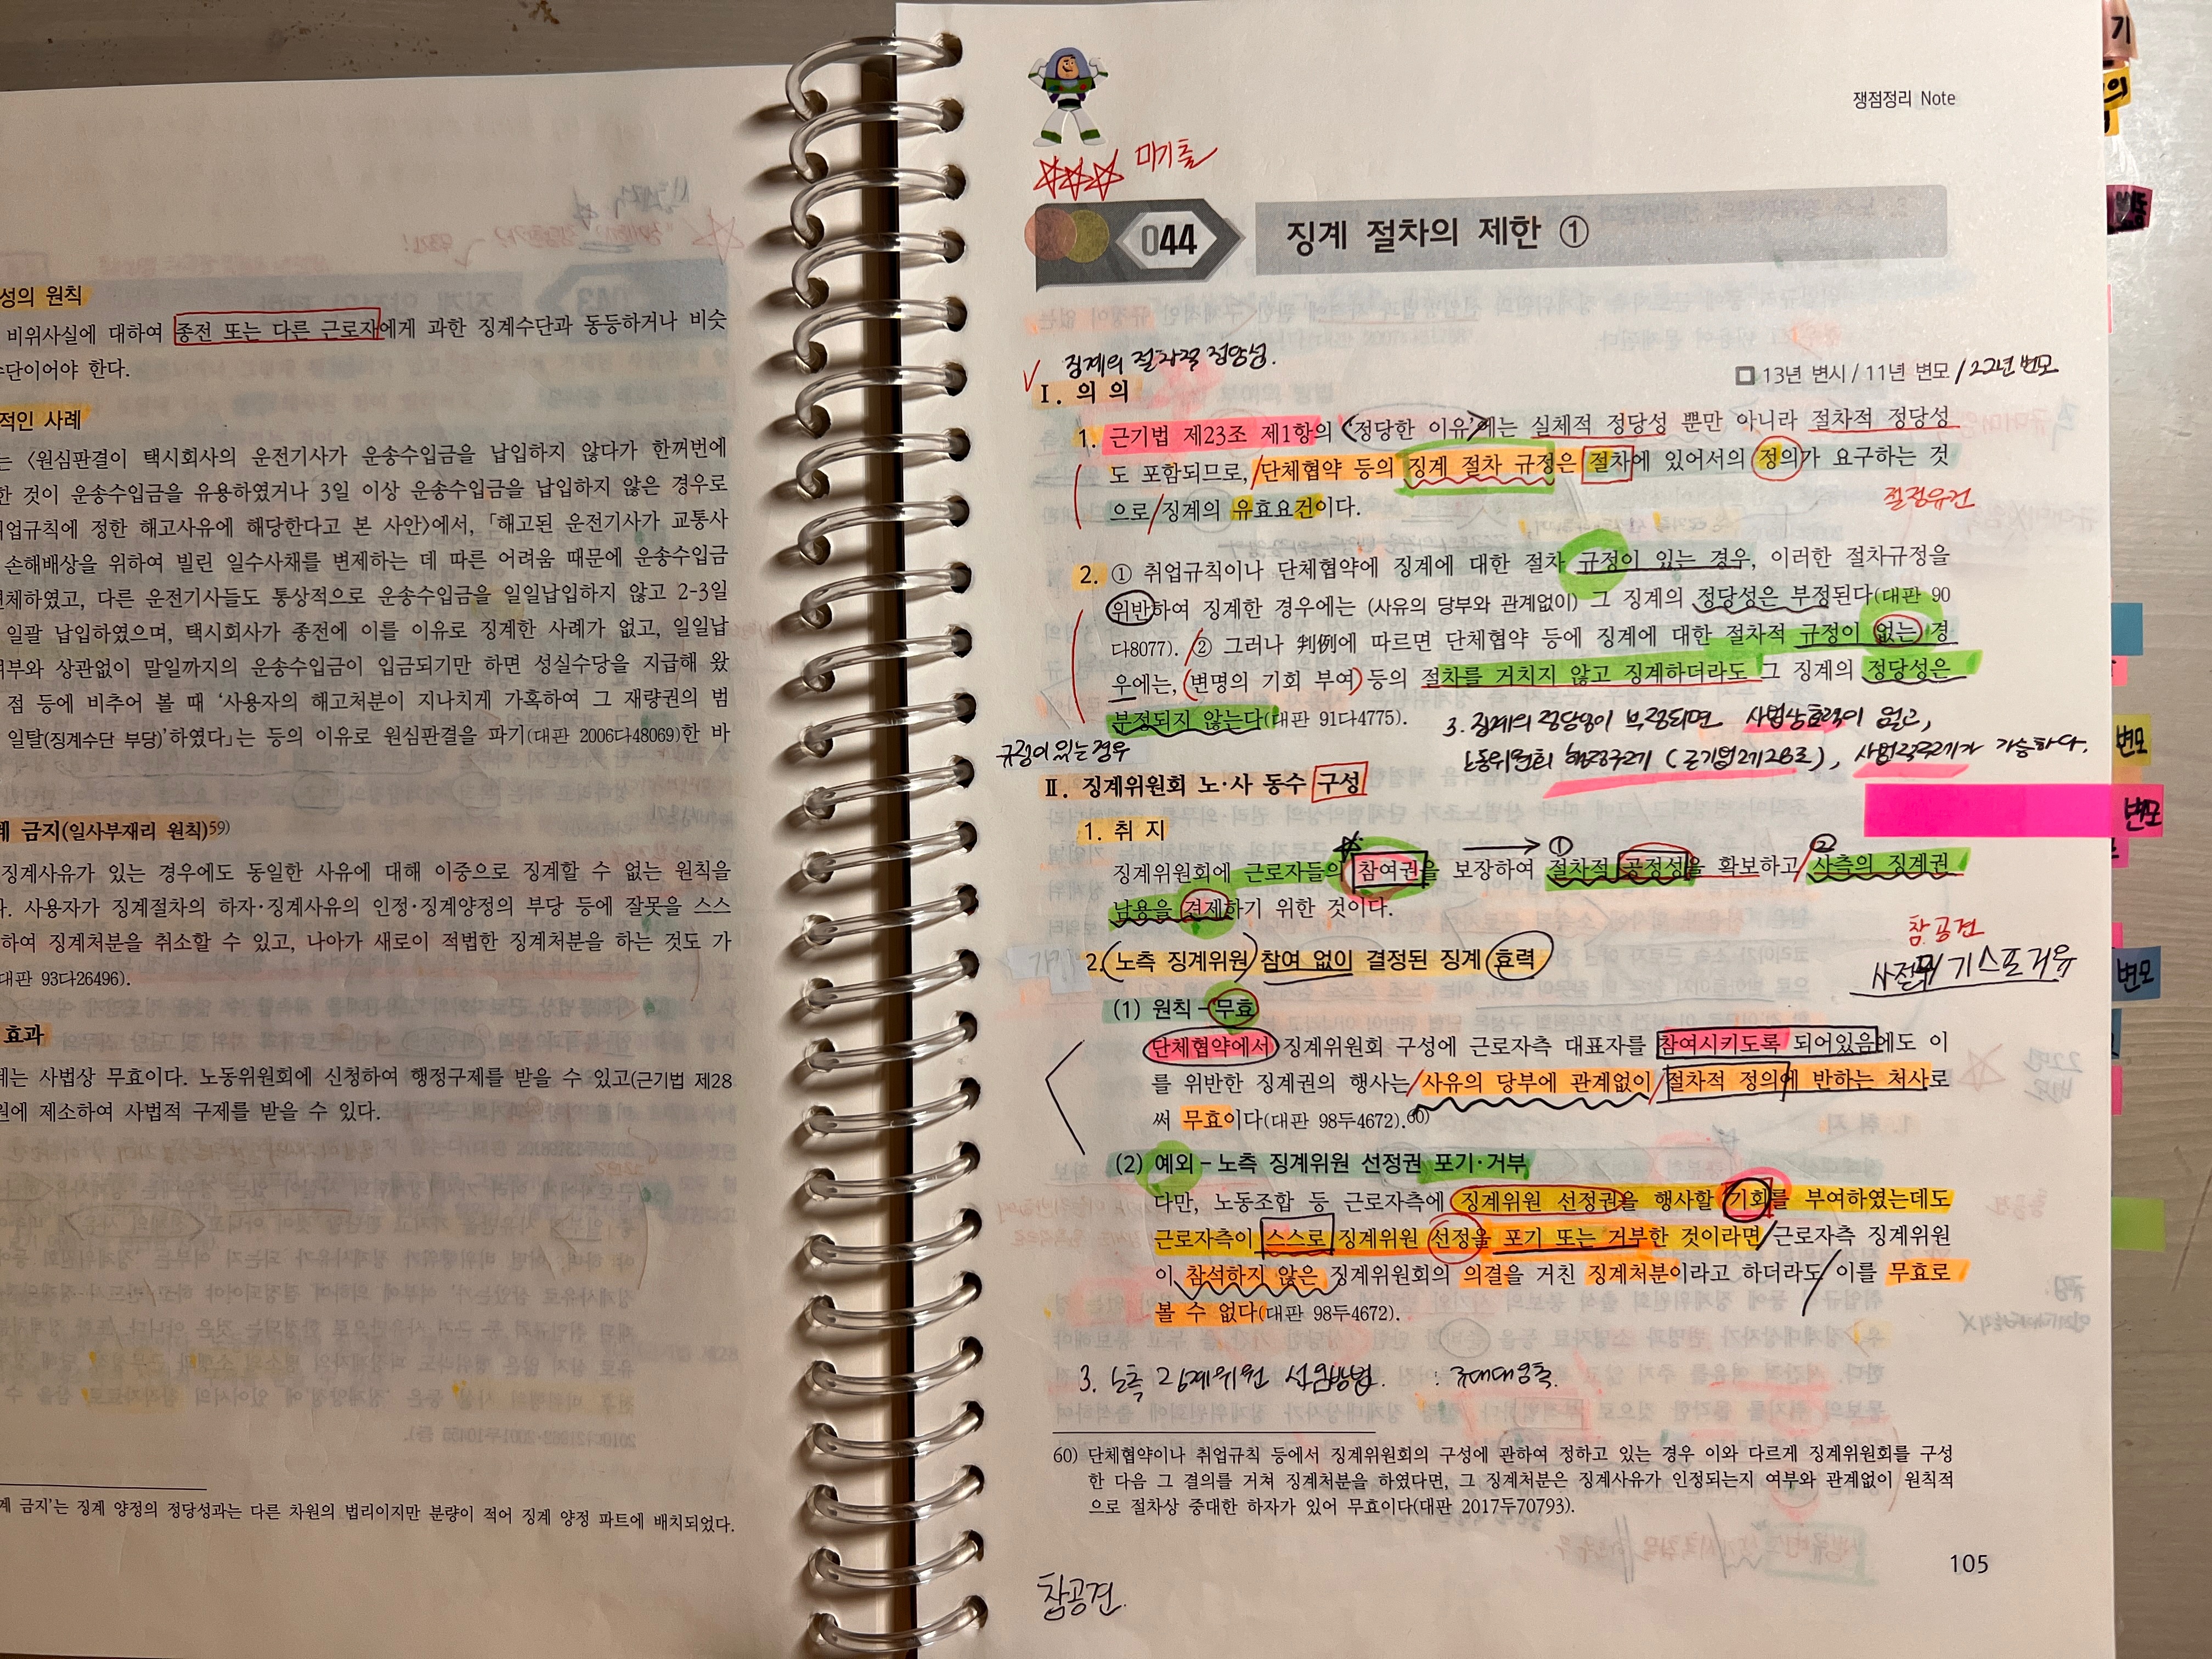 성의 원칙
비위사실에 대하여 종전 또는 다른 근로자에게 과한 징계수단과 동등하거나 비슷
수단이어야 한다.
적인 사례
는 〈원심판결이 택시회사의 운전기사가 운송수입금을 납입하지 않다가 한꺼번에
한 것이 운송수입금을 유용하였거나 3일 이상 운송수입금을 납입하지 않은 경우로
업규칙에 정한 해고사유에 해당한다고 본 사안〉에서, 「해고된 운전기사가 교통사
손해배상을 위하여 빌린 일수사채를 변제하는 데 따른 어려움 때문에 운송수입금
변제하였고, 다른 운전기사들도 통상적으로 운송수입금을 일일납입하지 않고 2-3일
일괄 납입하였으며, 택시회사가 종전에 이를 이유로 징계한 사례가 없고, 일일납
여부와 상관없이 말일까지의 운송수입금이 입금되기만 하면 성실수당을 지급해 왔
점 등에 비추어 볼 때 '사용자의 해고처분이 지나치게 가혹하여 그 재량권의 범
일탈(징계수단 부당)'하였다」는 등의 이유로 원심판결을 파기(대판 2006다48069)한 바
계 금지(일사부재리 원칙)59)
징계사유가 있는 경우에도 동일한 사유에 대해 이중으로 징계할 수 없는 원칙을
. 사용자가 징계절차의 하자·징계사유의 인정·징계양정의 부당 등에 잘못을 스스
하여 징계처분을 취소할 수 있고, 나아가 새로이 적법한 징계처분을 하는 것도 가
대판 93다26496).
효과
계는 사법상 무효이다. 노동위원회에 신청하여 행정구제를 받을 수 있고(근기법 제28
원에 제소하여 사법적 구제를 받을 수 있다.
계 금지'는 징계 양정의 정당성과는 다른 차원의 법리이지만 분량이 적어 징계 양정 파트에 배치되었다.
쟁점정리 Note
미기출
044 징계 절차의 제한 ①
징계의 절차적 정당성.
13년 변시 / 11년 변모 / 22년 변모
Ⅰ. 의 의
1. 근기법 제23조 제1항의 〈'정당한 이유'〉에는 실체적 정당성 뿐만 아니라 절차적 정당성
도 포함되므로, 단체협약 등의 징계 절차 규정은 절차에 있어서의 정의가 요구하는 것
으로 징계의 유효요건이다.
절정유건
2. ① 취업규칙이나 단체협약에 징계에 대한 절차 규정이 있는 경우, 이러한 절차규정을
위반하여 징계한 경우에는 (사유의 당부와 관계없이) 그 징계의 정당성은 부정된다(대판 90
다8077). ② 그러나 判例에 따르면 단체협약 등에 징계에 대한 절차적 규정이 없는 경
우에는, (변명의 기회 부여) 등의 절차를 거치지 않고 징계하더라도 그 징계의 정당성은
부정되지 않는다(대판 91다4775).
3. 징계의 정당성이 부정되면 사법상효력이 없고,
노동위원회 행정구제 (근기법 제28조), 사법적구제가 가능하다.
규정이 있는 경우
Ⅱ. 징계위원회 노·사 동수 구성
1. 취 지
① ②
징계위원회에 근로자들의 참여권을 보장하여 절차적 공정성을 확보하고 사측의 징계권
남용을 견제하기 위한 것이다.
참공견
2. 노측 징계위원 참여 없이 결정된 징계 효력
(1) 원칙 - 무효
단체협약에서 징계위원회 구성에 근로자측 대표자를 참여시키도록 되어있음에도 이
를 위반한 징계권의 행사는 사유의 당부에 관계없이 절차적 정의에 반하는 처사로
써 무효이다(대판 98두4672).60)
(2) 예외 - 노측 징계위원 선정권 포기·거부
다만, 노동조합 등 근로자측에 징계위원 선정권을 행사할 기회를 부여하였는데도
근로자측이 스스로 징계위원 선정을 포기 또는 거부한 것이라면 근로자측 징계위원
이 참석하지 않은 징계위원회의 의결을 거친 징계처분이라고 하더라도 이를 무효로
볼 수 없다(대판 98두4672).
3. 노측 징계위원 선임방법.
60) 단체협약이나 취업규칙 등에서 징계위원회의 구성에 관하여 정하고 있는 경우 이와 다르게 징계위원회를 구성
한 다음 그 결의를 거쳐 징계처분을 하였다면, 그 징계처분은 징계사유가 인정되는지 여부와 관계없이 원칙적
으로 절차상 중대한 하자가 있어 무효이다(대판 2017두70793).
105
참공견.
기
변모
변모
변모